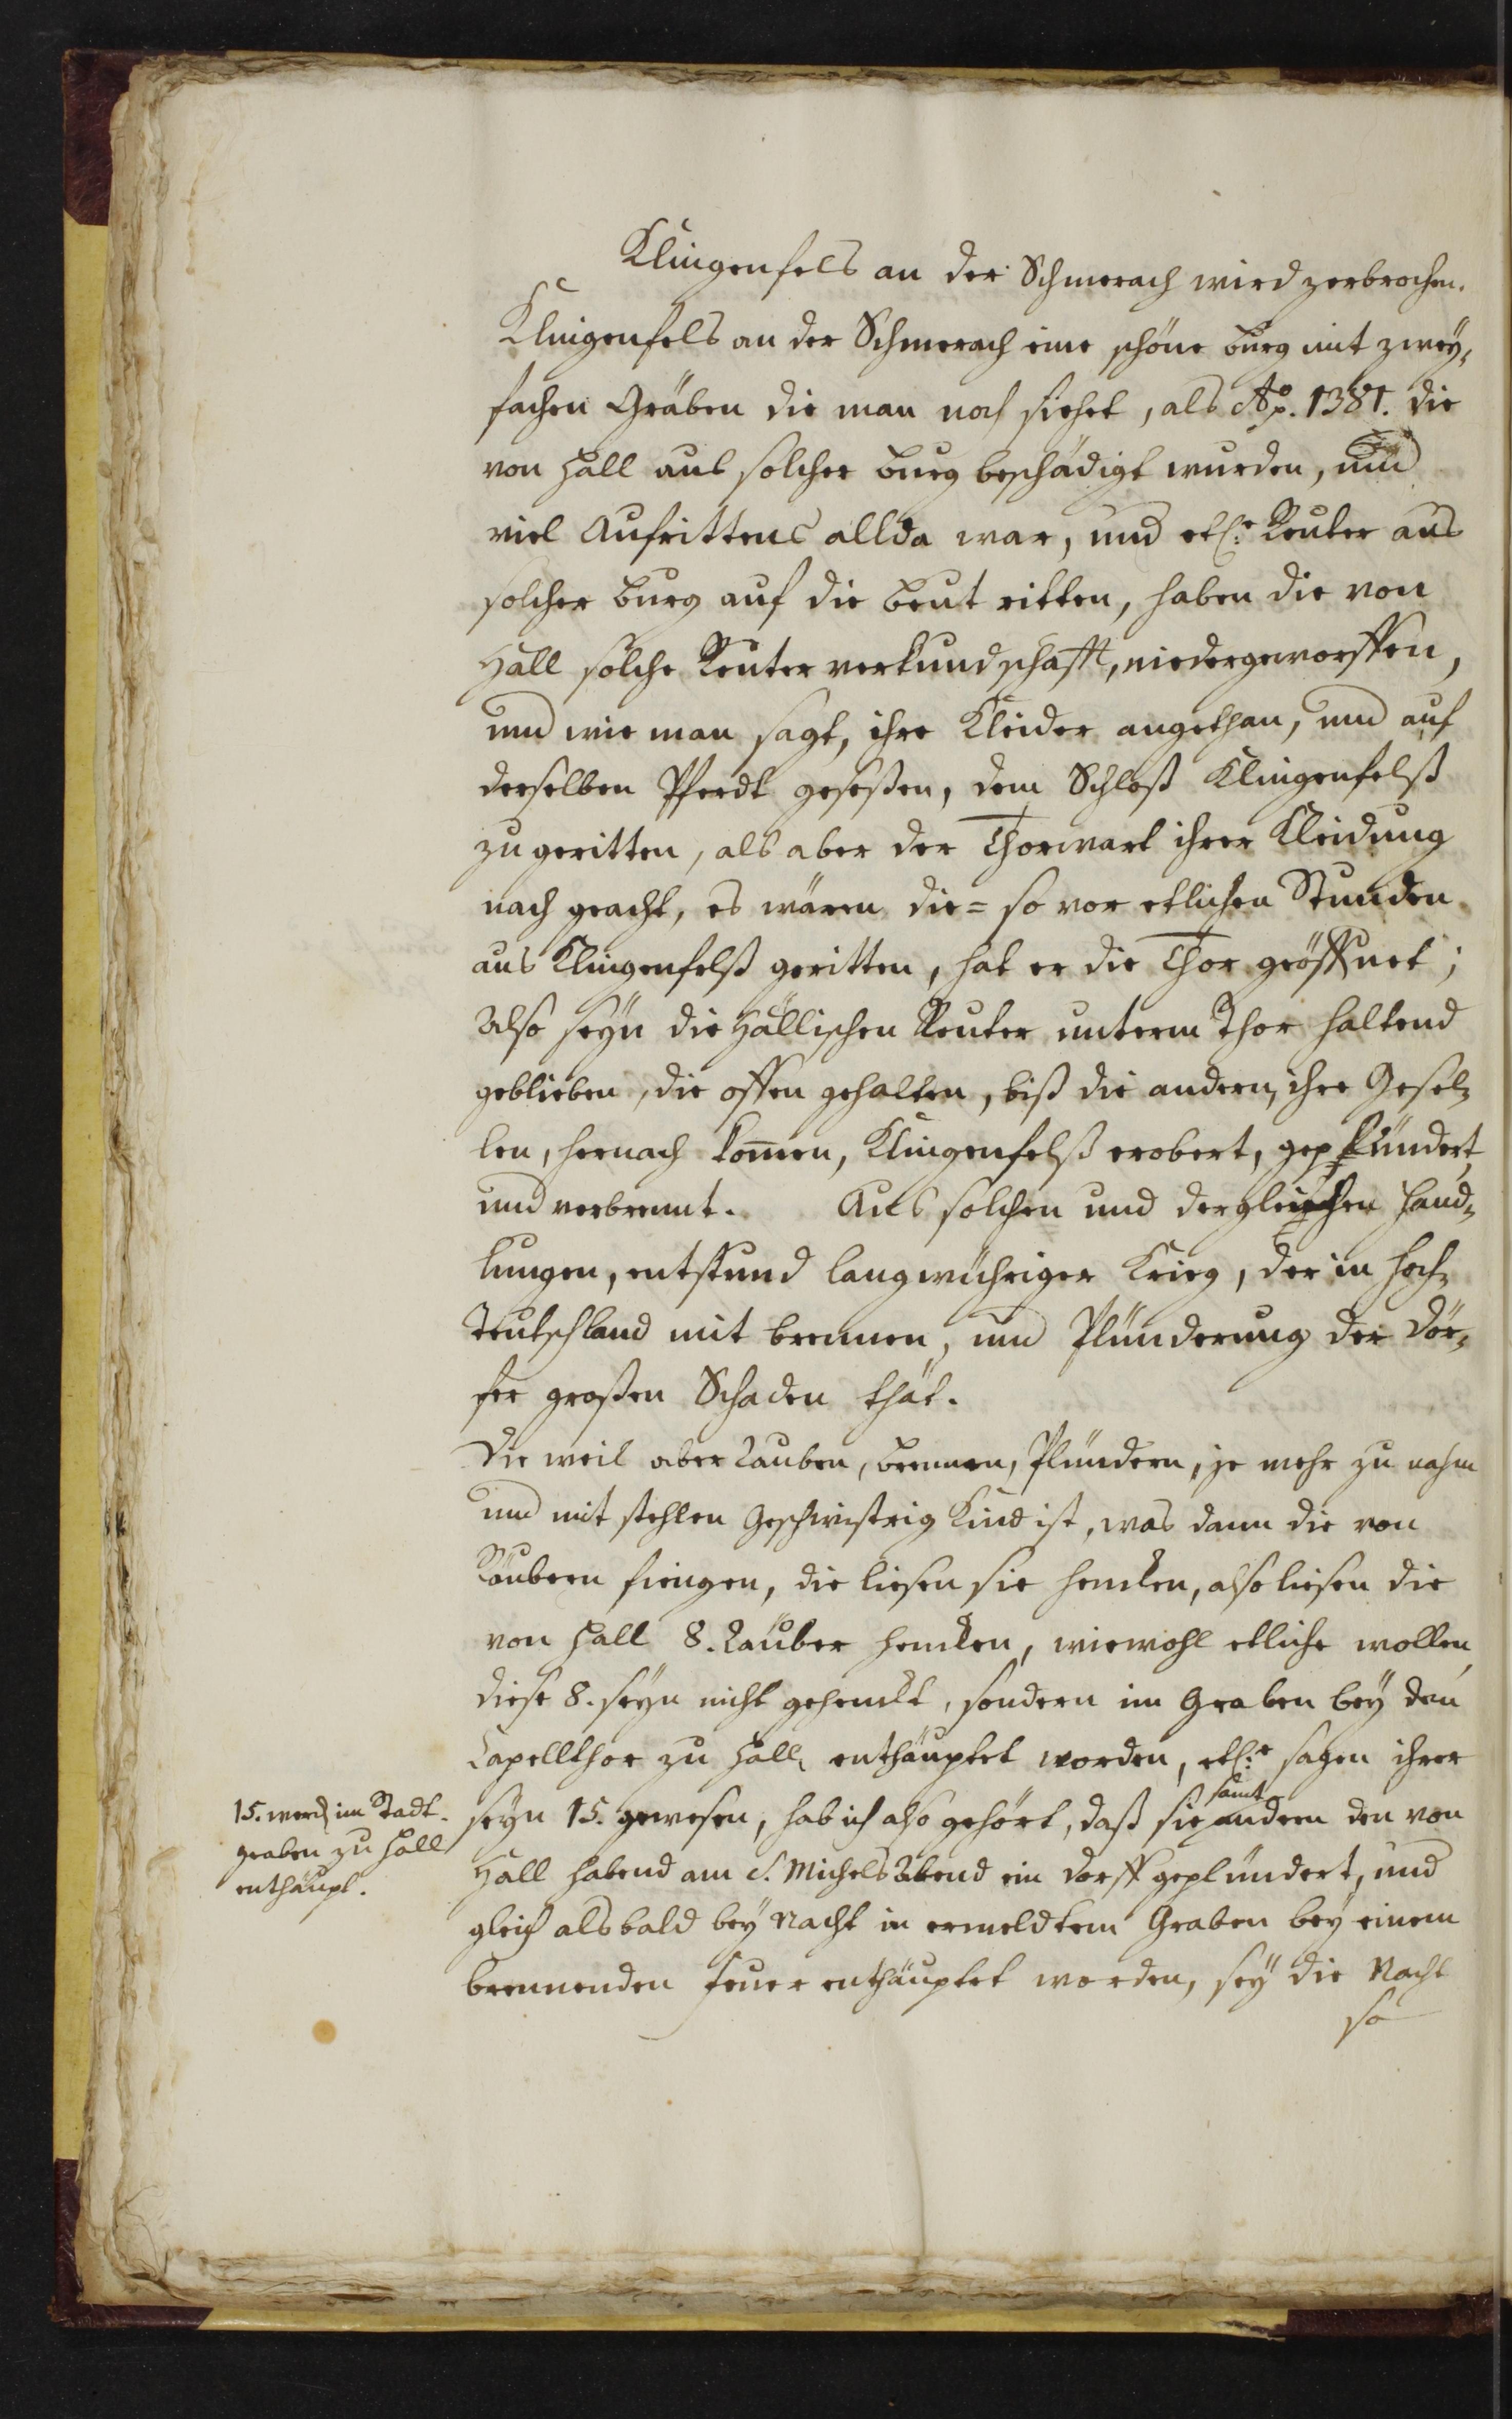 Klingenfels an der Schmerach wird zerbrochen.
Klingenfels an der Schmerach eine schöne burg mit zwey,
fachen Gräben die man noch siehet, als Ao. 1381. die
von Hall aus solcher burg beschädigt wurden, und
viel Aufrittens allda war, und etl:e Reuter aus
solcher burg auf die beut ritten, haben die von
Hall solche Reuter verkundschafft, niedergeworffen,
und wie man sagt, ihre Kleider angethan, und auf
derselben Pferdt geseßen, dem Schloß Klingenfelß
zu geritten, als aber der Thorwart ihrer Kleidung
nach geacht, es wären die= so vor etlichen Stunden
aus Klingenfelß geritten, hat er die Thor geöffnet;
Also seyn die Hällischen Reuter unterm Thor haltend
geblieben, die offen gehalten, biß die andern, ihre Gesel,
len, hernach kom̄en, Klingenfelß erobert, geplündert,
und verbrennt. Aus solchen und dergleichen Hand,
lungen, entstund langwühriger Krieg, der in Hoch,
Teutschland mit brennen, und Plünderung der Dör,
fer großen Schaden thät.
Die weil aber Rauben, brennen, Plündern, je mehr zu nahm
und mit stehlen Geschwistrig Kind ist, was dann die von
Räubern fiengen, die liesen sie hencken, also liesen die
von Hall 8. Rauber hencken, wiewohl etliche wollen,
diese 8. seyn nicht gehenckt, sondern im Graben bey dem
Capellthor zu Hall enthäuptet worden, etl:e sagen ihrer
seyn 15. gewesen, hab ich also gehört, daß sie samt andern den von
Hall habend am S. Michels Abend ein Dorff geplündert, und
gleich alsbald bey Nacht in ermeldtem Graben bey einem
brennenden Feuer enthäuptet worden, sey die Nacht
so
15. werd im Stadt.
graben zu Hall
enthäupt.